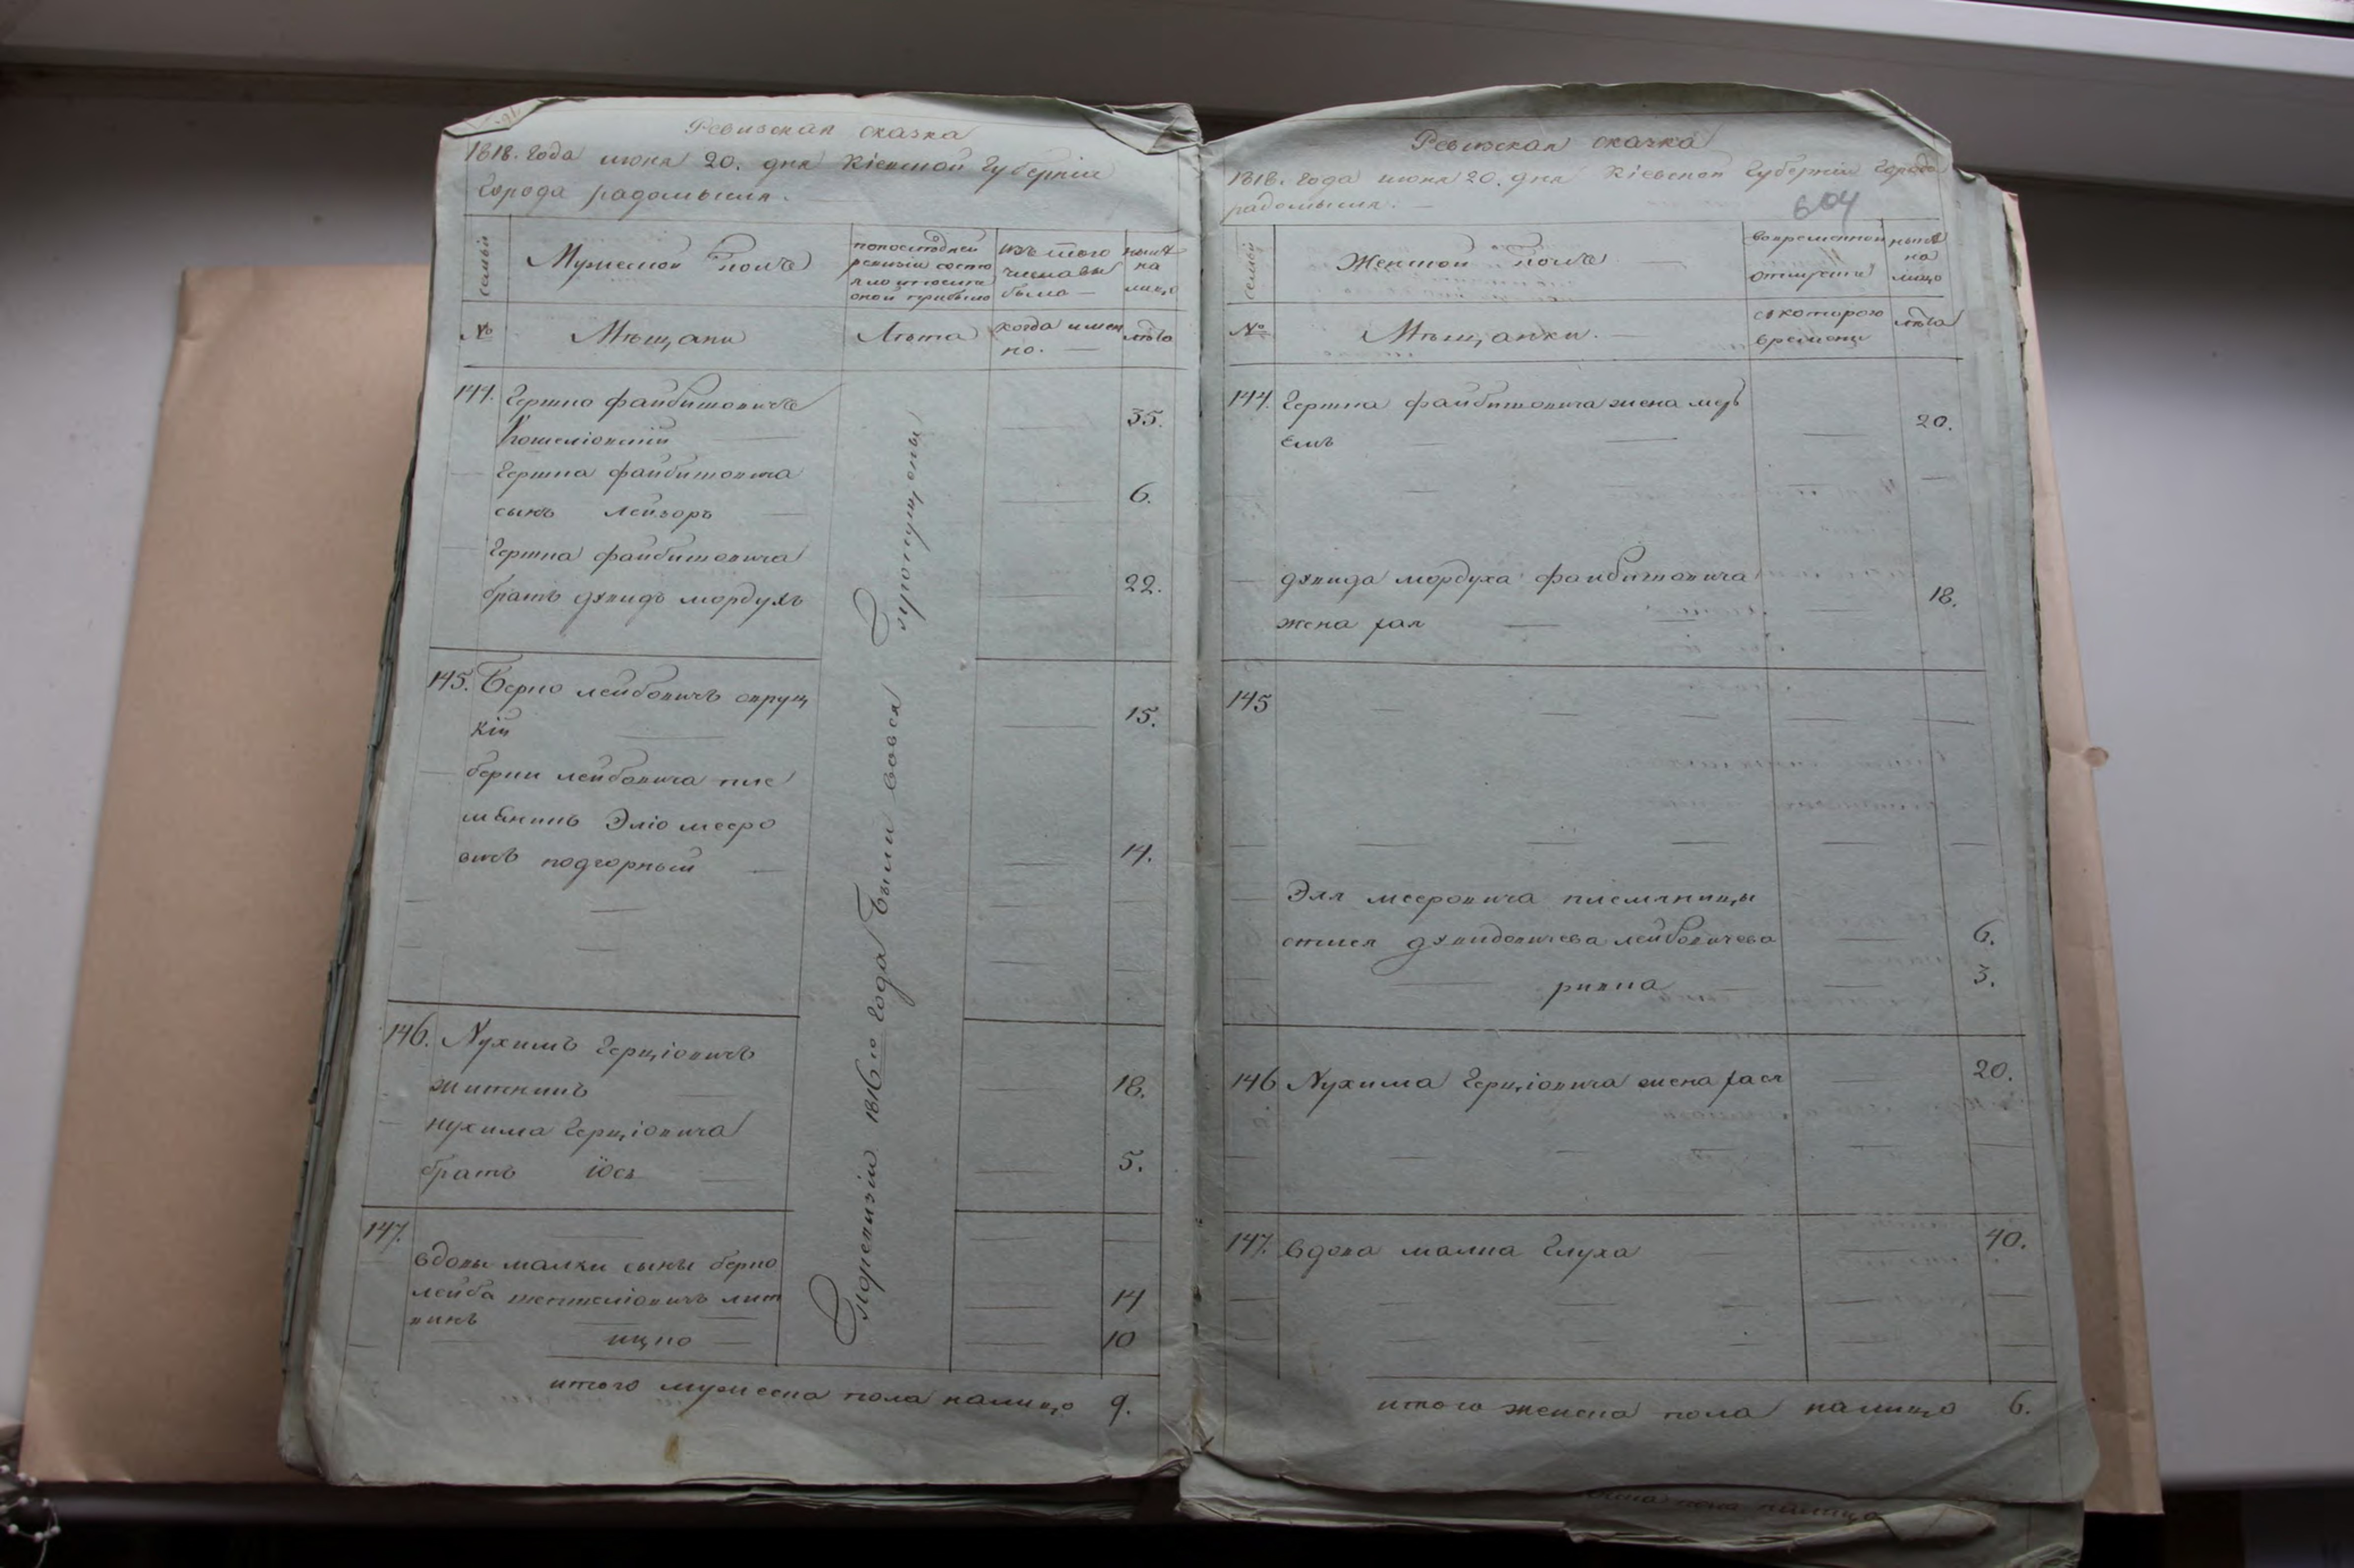 Ревизская сказка
1818. года июня 20. дня Кіевской губерніи
города радомысля.
семьи
Мужеской полъ
попоследней
ревизіи состо
яло и после
оной прибыло
изъ того
числа вы
было
ныне
на
лицо
№
Мѣщани
Лѣта
когда имен
но.
лѣта
144. Гершко файбишовичъ
Кошеліовскій 35.
Гершка файбишовича
сынъ Лейзоръ 6.
Гершка файбишовича
братъ дувидъ мордухъ 22.
145. Берко лейбовичъ овруц
кій 15.
берки лейбовича пле
мянникъ Эліо мееро
вичъ подгорный 14.
146. Нухимъ герціовичъ
житникъ 18.
нухима герціовича
братъ іось 5.
147.
вдовы малки сыны берко
лейба 14
ицко 10
Поревизіи 1816го года Были вовся пропущены
итого мужеска пола налицо 9.
Ревизская сказка
1818. года июня 20. дня Кіевской губерніи города
радомысля.
604
семьи
Женской полъ
вовременной
отлучке
ныне
на
лицо
№
Мѣщанки.
скоторого
времени
лѣта
144. Гершка файбишовича жена 20.
дувида мордуха файбишовича
жена хая 18.
145
Эля мееровича племянницы
дувидовичева лейбовичева 6.
ривка 3.
146 Нухима герціовича жена хася 20.
147. вдова малка глуха 40.
итого женска пола налицо 6.